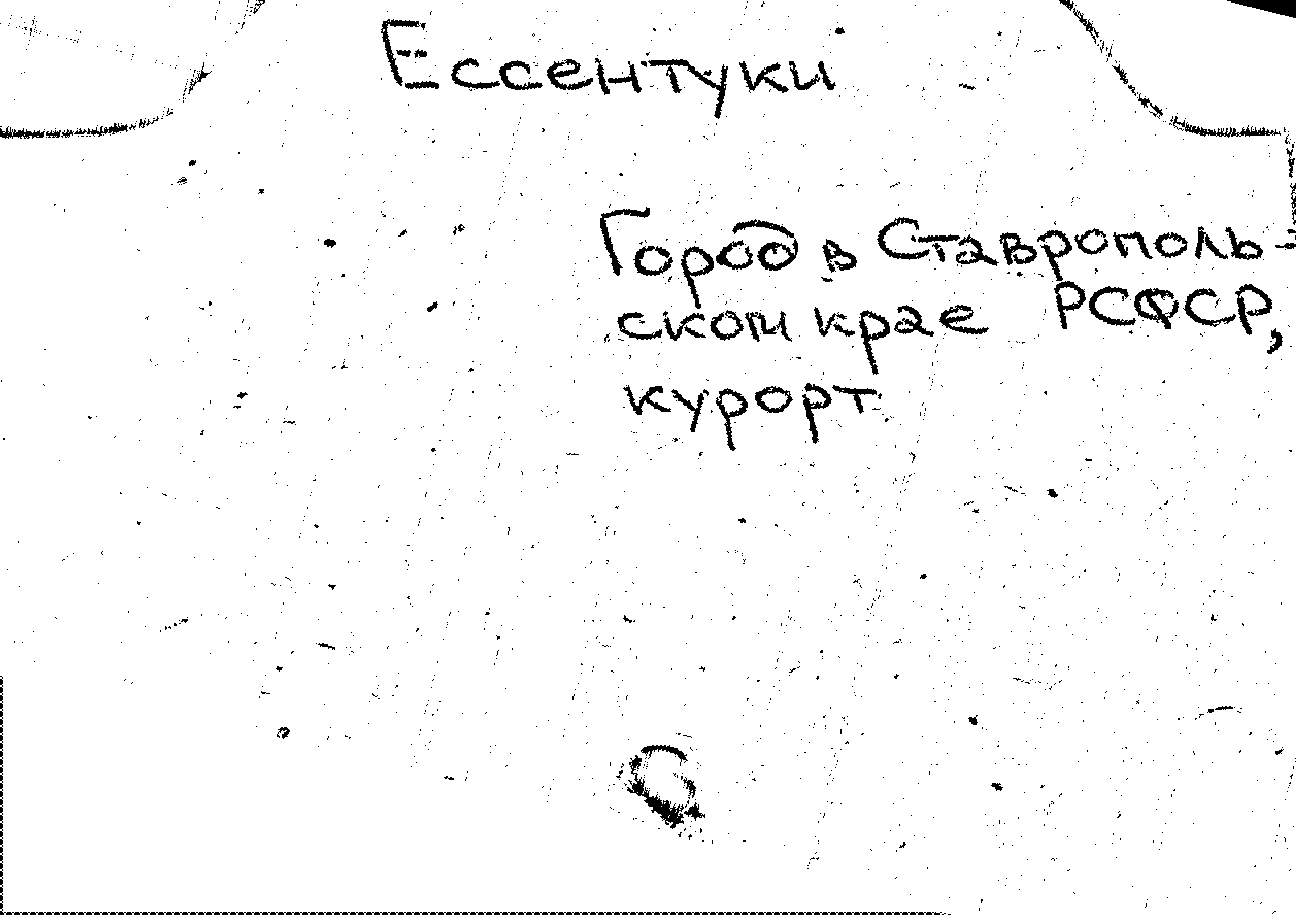 Ессентуки
Город в Ставрополь-
ском крае РСФСР,
курорт